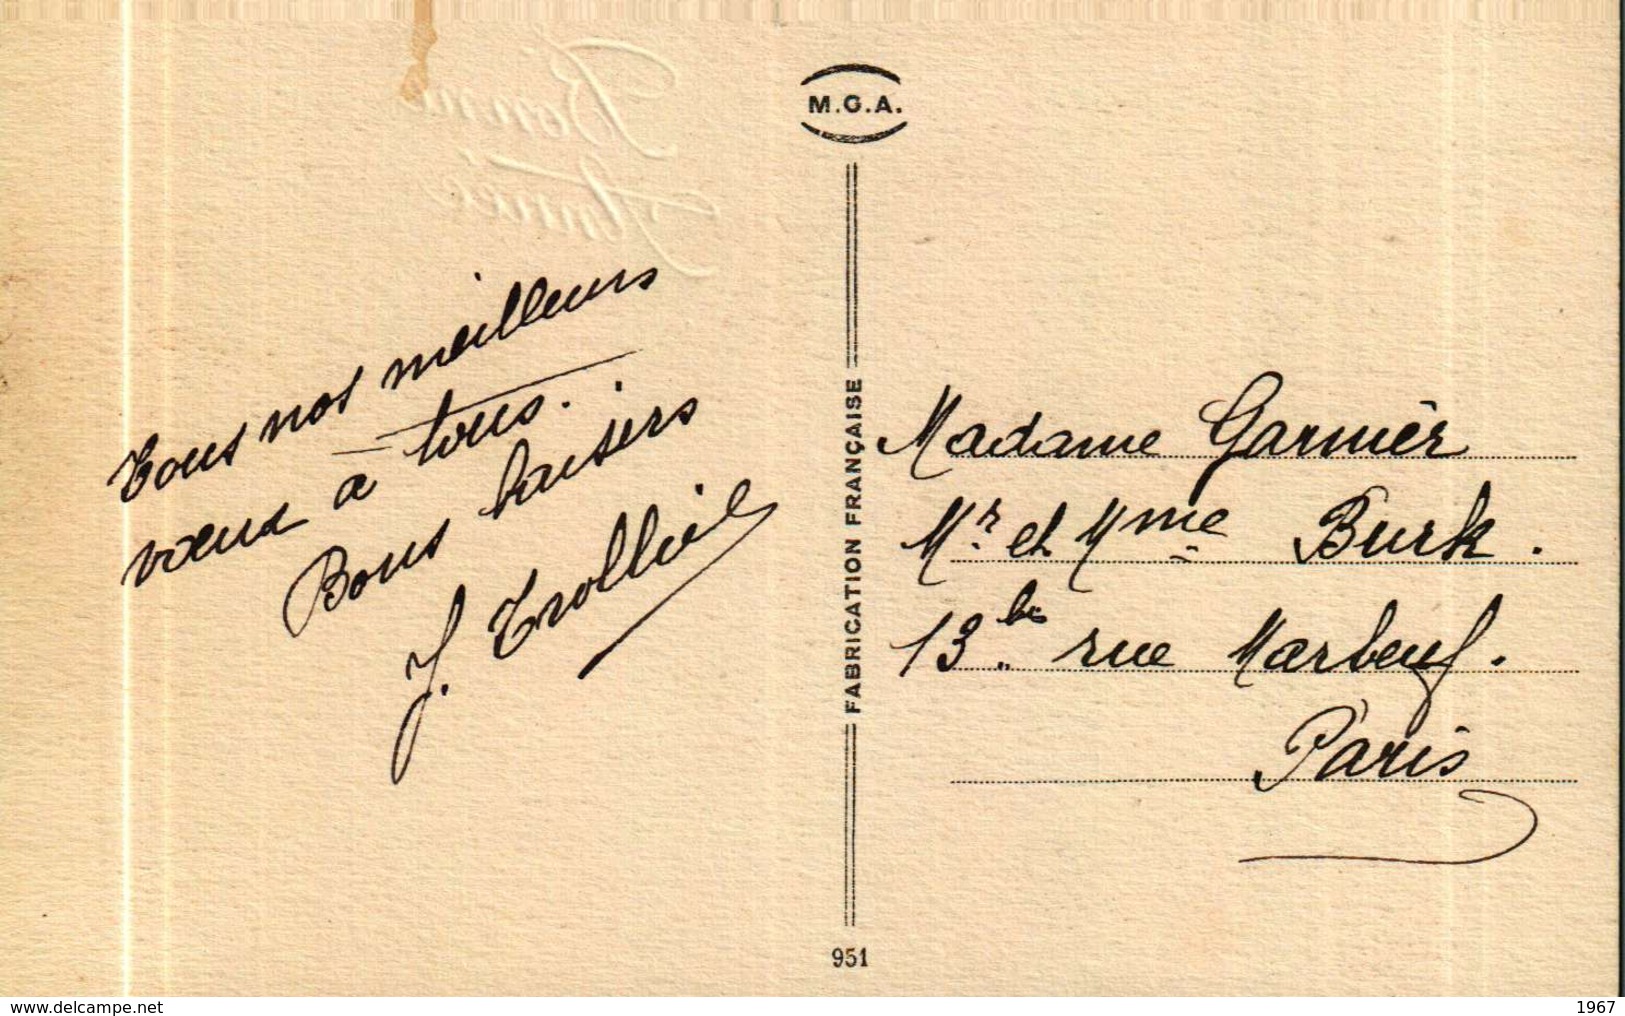 Bonne
Année
M.G.A.
Tous nos meilleurs
vœux à tous.
Bons baisers
J. Trolliet
FABRICATION FRANÇAISE
Madame Garnier
Mr et Mme Burk.
13 bis rue Marbeuf.
Paris
951
delcampe.net
1967